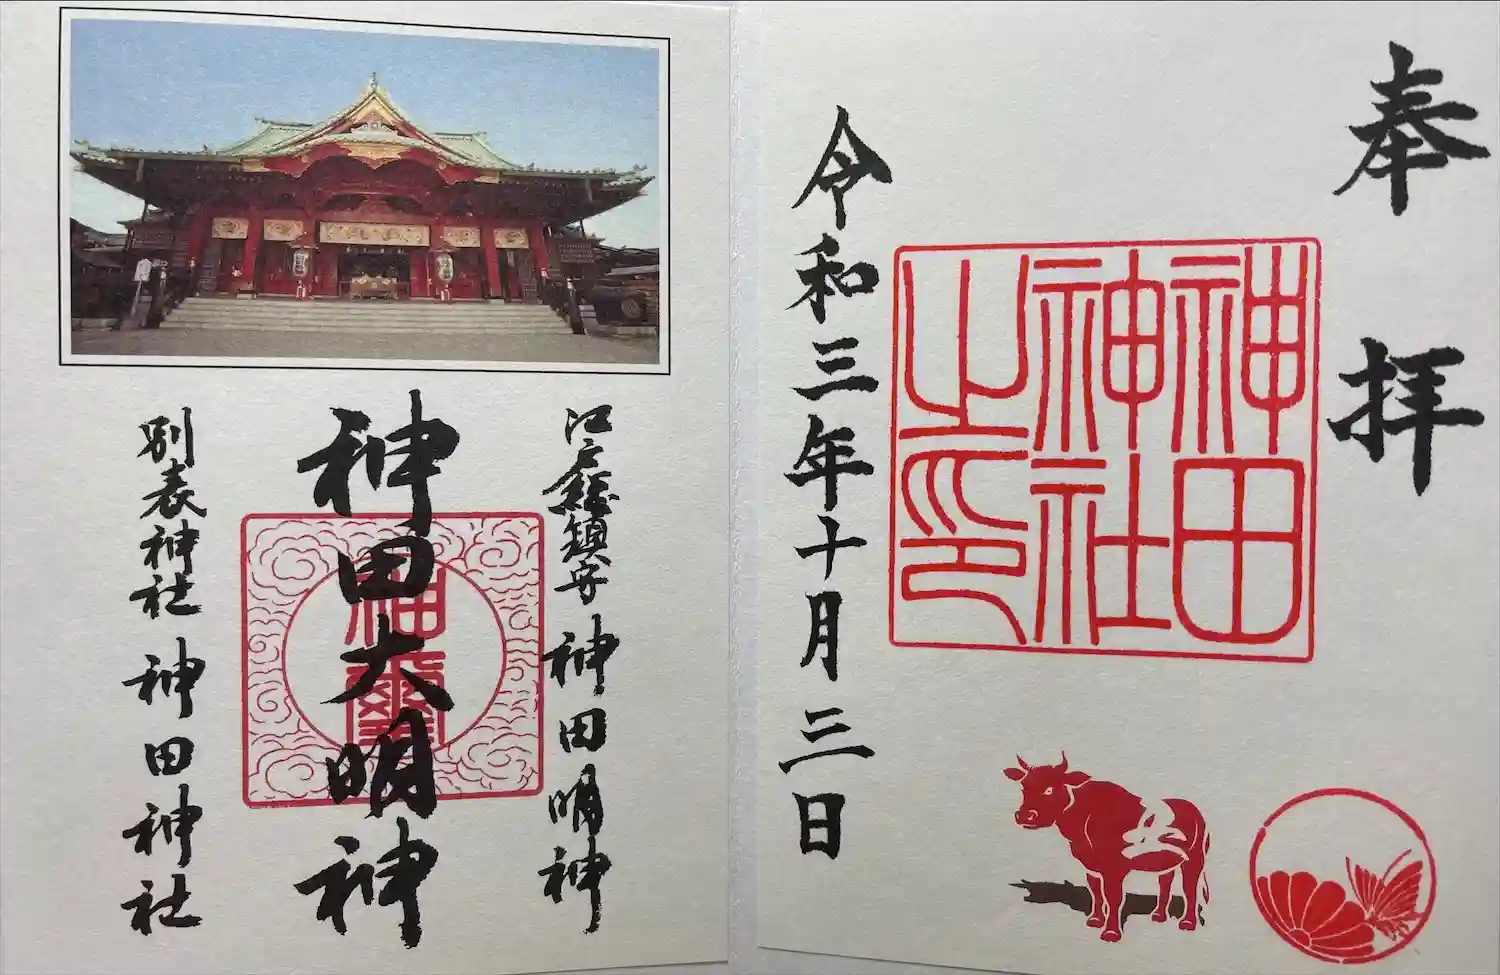 奉拝
神田
神社
之印
令和三年十月三日
江戸總鎮守 神田明神
神田大明神
神璽
別表神社 神田神社